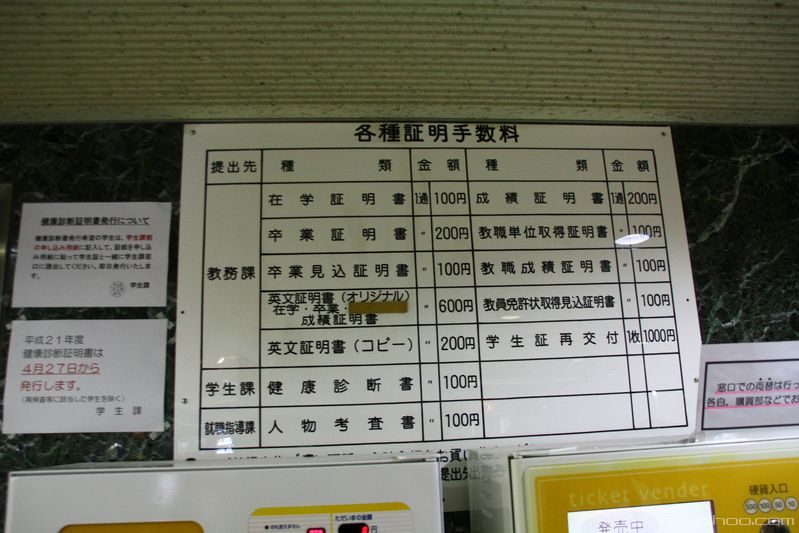 各種証明手数料
提出先 種類 金額 種類 金額
教務課
在学証明書 1通 100円 成績証明書 1通 200円
卒業証明書 〃 200円 教職単位取得証明書 〃 100円
卒業見込証明書 〃 100円 教職成績証明書 〃 100円
英文証明書(オリジナル)
在学・卒業・
成績証明書
〃 600円 教員免許状取得見込証明書 〃 100円
英文証明書(コピー) 〃 200円 学生証再交付 1枚 1000円
学生課 健康診断書 〃 100円
就職指導課 人物考査書 〃 100円
健康診断証明書発行について
健康診断書発行希望の学生は、学生課前
の申し込み用紙に記入して、証紙を申し込
み用紙に貼って学生証と一緒に学生課窓
口に提出してください。即日発行いたしま
す。
学生課
平成21年度
健康診断証明書は
4月27日から
発行します。
(再検査等に該当した学生を除く)
学生課
窓口での両替は行っ
各自、購買部などでお
ただいまの金額
円
ticket vender
硬貨入口
500 100 50 10
発売中